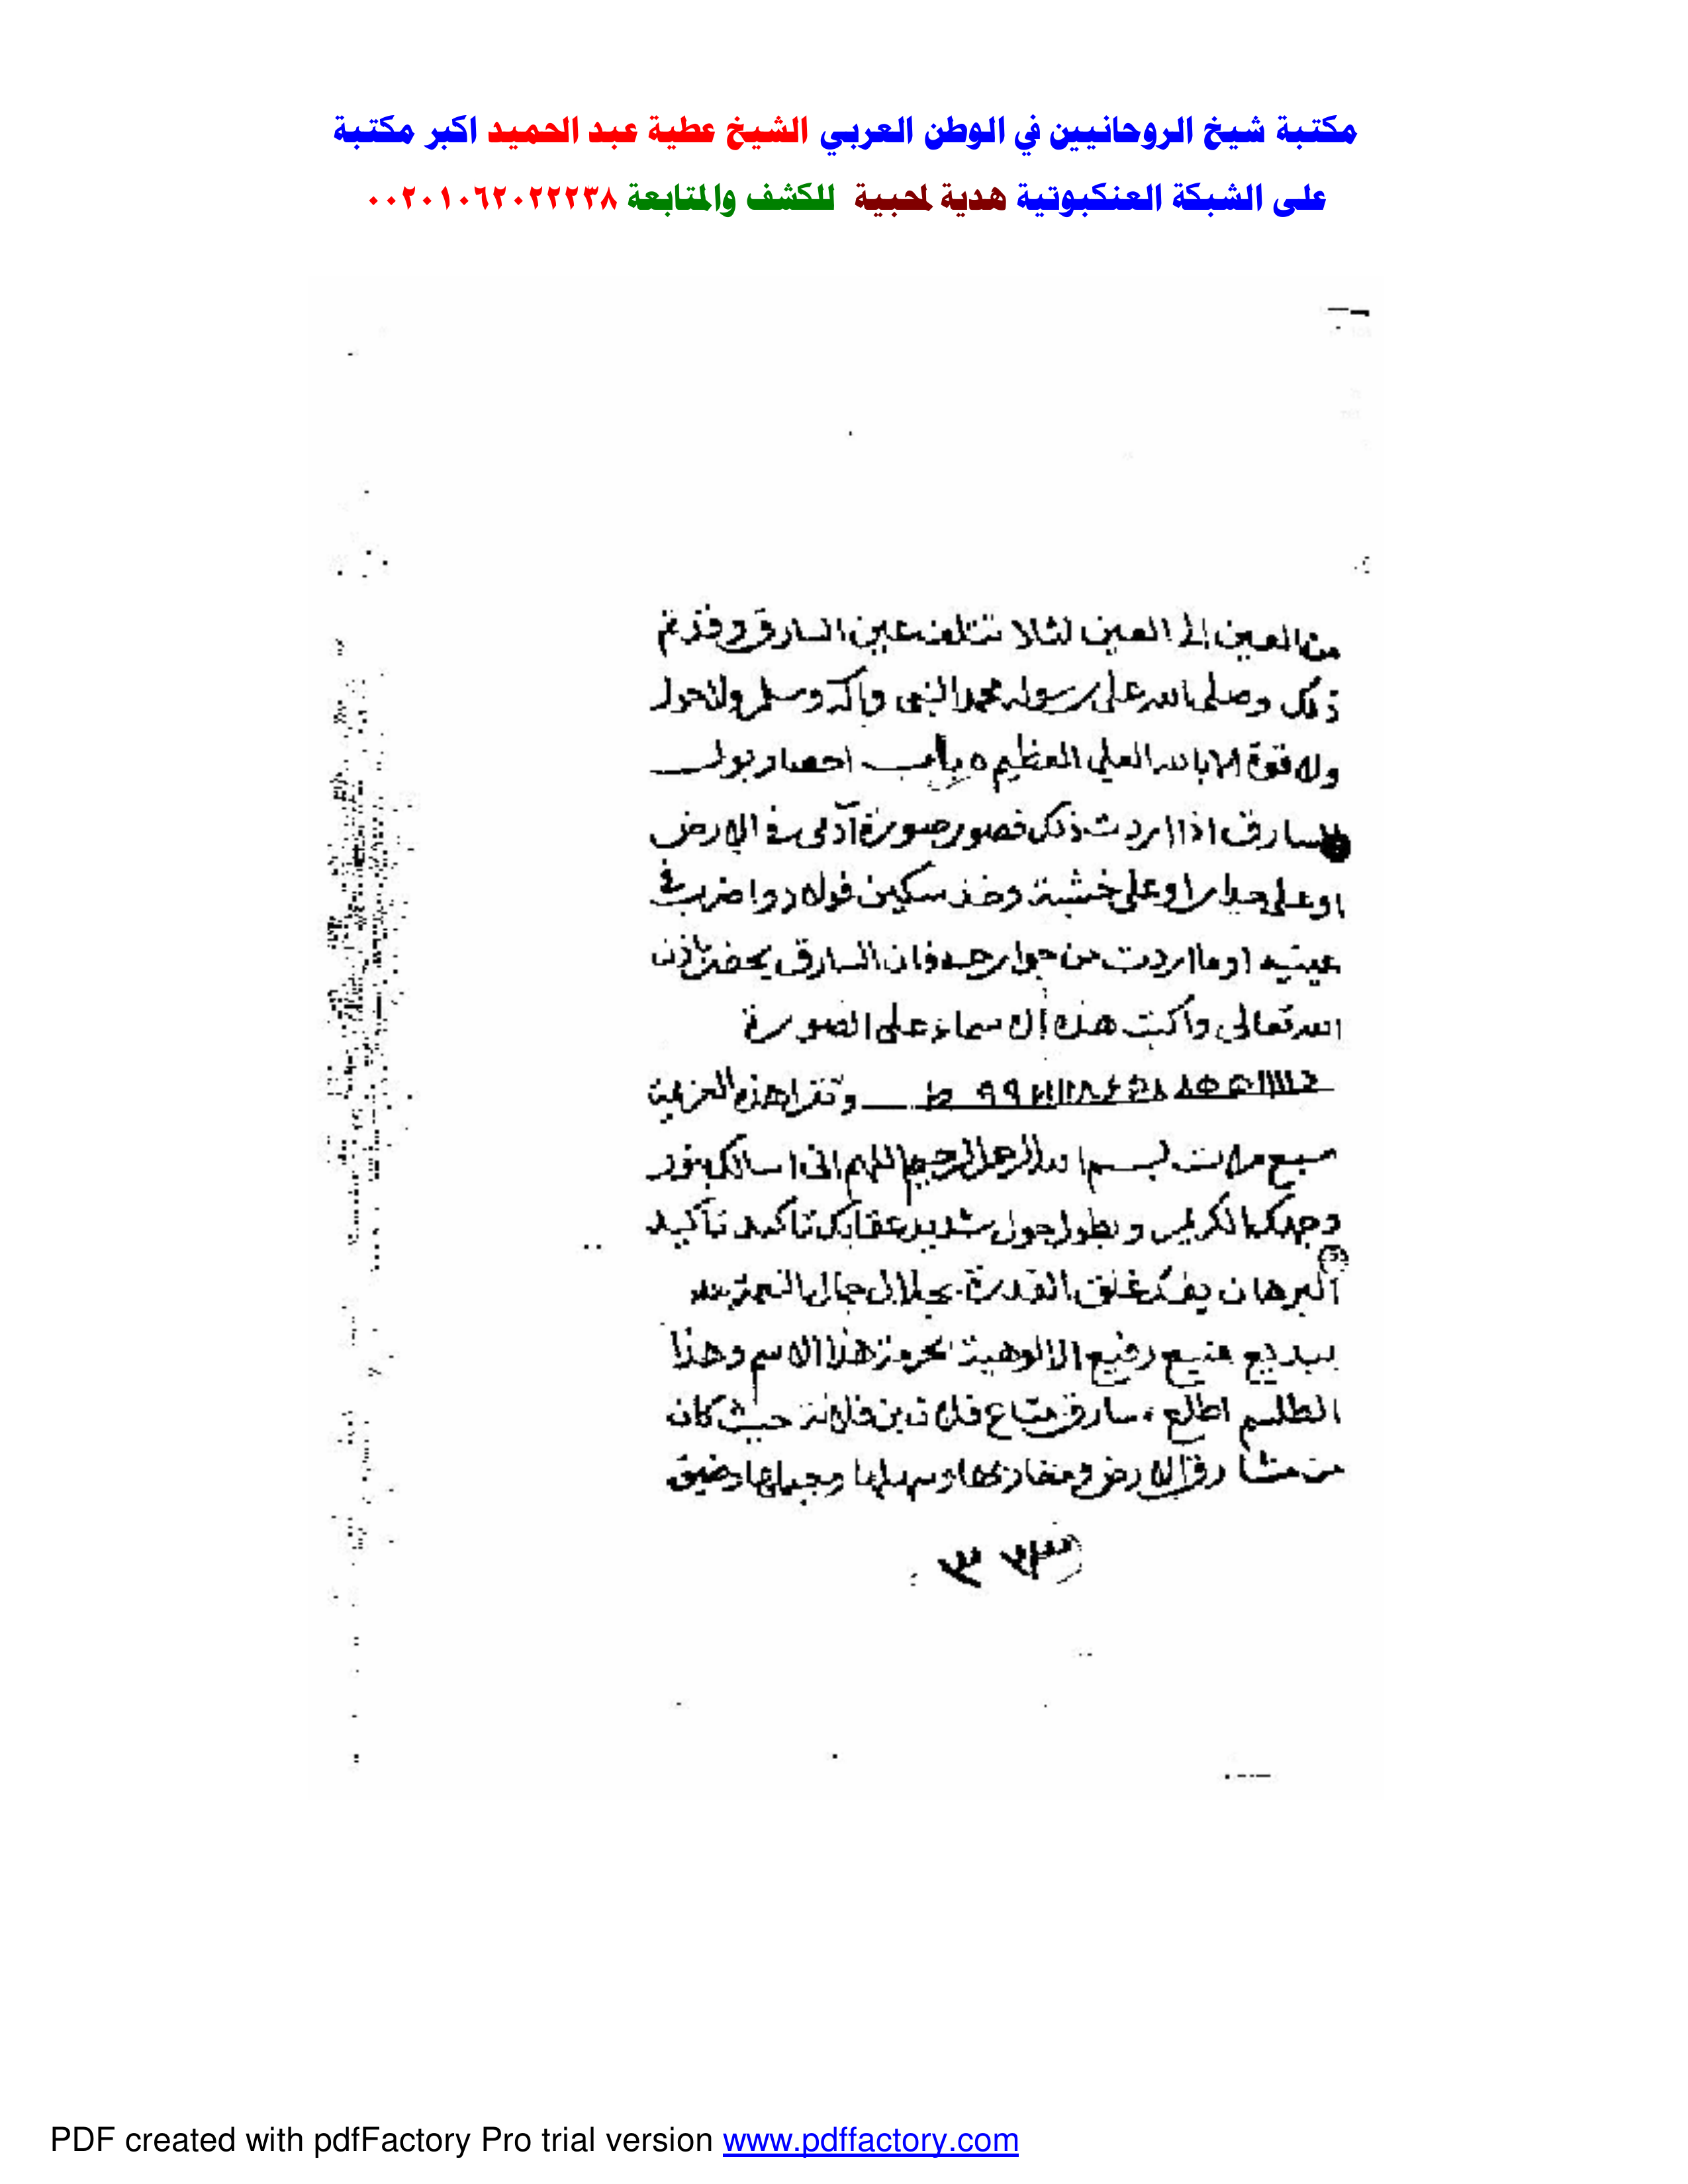 مكتبة شيخ الروحانيين في الوطن العربي الشيخ عطية عبد الحميد اكبر مكتبة
على الشبكة العنكبوتية هدية لمحبية للكشف والمتابعة ٠٠٢٠١٠٦٢٠٢٢٢٣٨
من العين إلى العين لئلا تتلف عين السارق وقد تم
ذلك وصلى الله على رسوله محمد النبي وآله وسلم ولا حول
ولا قوة الا بالله العلي العظيم ه باب احصار بول
السارق اذا اردت ذلك فصور صورة آدمي في الارض
او على جدار او على خشبة وخذ سكين فولاد واضرب في
عينيه او ما اردت من جوارحه فان السارق يحضر باذن
الله تعالى واكتب هذه الاسماء على الصورة
وتقرا هذه العزيمة
سبع مرات بسم الله الرحمن الرحيم اللهم اني اسالك بنور
وجهك الكريم وبطول حول شديد عقابك تاكيد تاكيد
البرهان يفك غلق القدرة بجلال جمال
ببديع منيع رفيع الالوهية بحرمة هذا الاسم وهذا
الطلسم اطلع سارق متاع فلان بن فلانة حيث كان
من مشارق الارض ومغاربها وسهلها وجبلها وضيق
PDF created with pdfFactory Pro trial version www.pdffactory.com